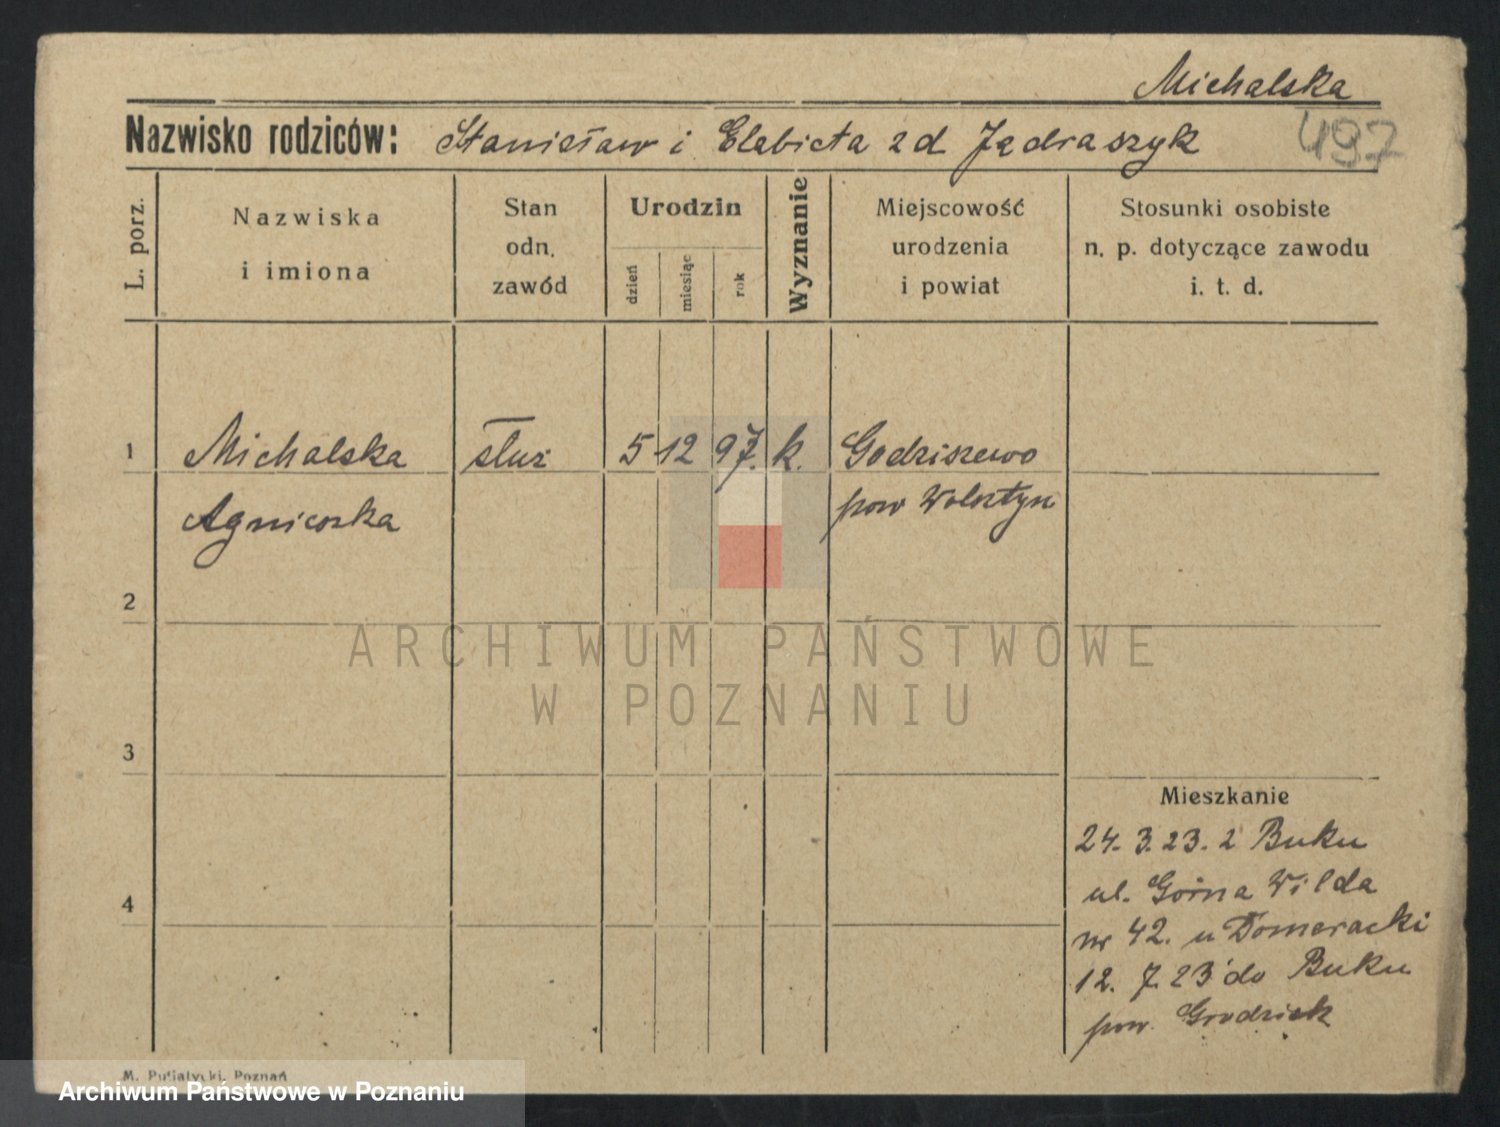 Michalska
Nazwisko rodziców: Stanisław i Elżbieta zd Jędraszyk
497
L. porz.
Nazwiska
i imiona
Stan
odn.
zawód
Urodzin
dzień
miesiąc
rok
Wyznanie
Miejscowość
urodzenia
i powiat
Stosunki osobiste
n. p. dotyczące zawodu
i. t. d.
1 Michalska służ 5 12 97. k. Godziszewo
Agnieszka pow Wolsztyn
2
3
4
Mieszkanie
24. 3. 23. z Buku
ul. Górna Wilda
nr 42. u Domeracki
12. 7. 23 do Buku
pow. Grodzisk
M. Putiatycki, Poznań
ARCHIWUM PAŃSTWOWE
W POZNANIU
Archiwum Państwowe w Poznaniu